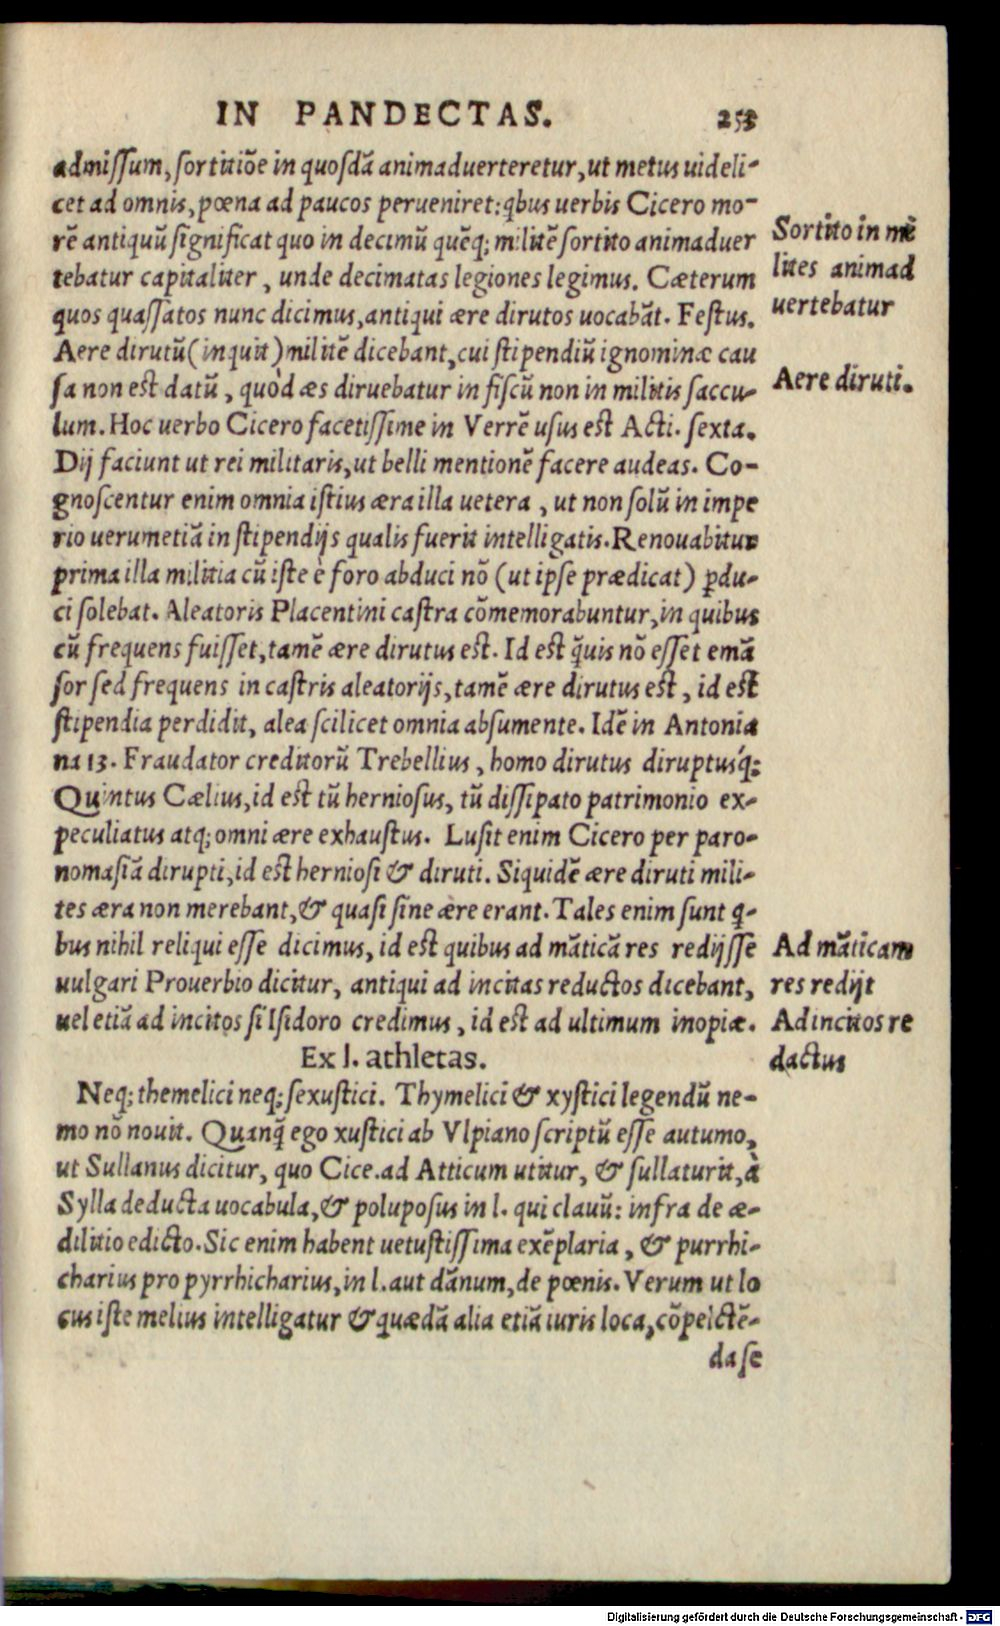 IN PANDECTAS. 253
admiſſum, ſortitiõe in quoſdã animaduerteretur, ut metus uideli-
cet ad omnis, pœna ad paucos perueniret: qbus uerbis Cicero mo-
rẽ antiquũ ſignificat quo in decimũ quẽq; militẽ ſortito animaduer
tebatur capitaliter, unde decimatas legiones legimus. Cæterum
quos quaſſatos nunc dicimus, antiqui ære dirutos uocabãt. Feſtus.
Aere dirutũ (inquit) militẽ dicebant, cui ſtipendiũ ignominæ cau
ſa non eſt datũ, quòd æs diruebatur in fiſcũ non in militis ſaccu-
lum. Hoc uerbo Cicero facetiſſime in Verrẽ uſus eſt Acti. ſexta.
Dij faciunt ut rei militaris, ut belli mentionẽ facere audeas. Co-
gnoſcentur enim omnia iſtius æra illa uetera, ut non ſolũ in impe
rio uerumetiã in ſtipendijs qualis fuerit intelligatis. Renouabitur
prima illa militia cũ iſte è foro abduci nõ (ut ipſe prædicat) ꝑdu-
ci ſolebat. Aleatoris Placentini caſtra cõmemorabuntur, in quibus
cũ frequens fuiſſet, tamẽ ære dirutus eſt. Id eſt q̃uis nõ eſſet emã
ſor ſed frequens in caſtris aleatorijs, tamẽ ære dirutus eſt, id eſt
ſtipendia perdidit, alea ſcilicet omnia abſumente. Idẽ in Antonia
na 13. Fraudator creditorũ Trebellius, homo dirutus diruptusq́;
Quintus Cælius, id eſt tũ hernioſus, tũ diſſipato patrimonio ex-
peculiatus atq; omni ære exhauſtus. Luſit enim Cicero per paro-
nomaſiã dirupti, id eſt hernioſi & diruti. Siquidẽ ære diruti mili-
tes æra non merebant, & quaſi ſine ære erant. Tales enim ſunt q-
bus nihil reliqui eſſe dicimus, id eſt quibus ad mãticã res redijſſe
uulgari Prouerbio dicitur, antiqui ad incitas reductos dicebant,
uel etiã ad incitos ſi Iſidoro credimus, id eſt ad ultimum inopiæ.
Ex l. athletas.
Neq; themelici neq; ſexuſtici. Thymelici & xyſtici legendũ ne-
mo nõ nouit. Quanq̃ ego xuſtici ab Vlpiano ſcriptũ eſſe autumo,
ut Sullanus dicitur, quo Cice. ad Atticum utitur, & ſullaturit, à
Sylla deducta uocabula, & polupoſus in l. qui clauũ: infra de æ-
dilitio edicto. Sic enim habent uetuſtiſſima exẽplaria, & purrhi-
charius pro pyrrhicharius, in l. aut dãnum, de pœnis. Verum ut lo
cus iſte melius intelligatur & quædã alia etiã iuris loca, cõpeictẽ-
da ſe
Sortito in mi
lites animad
uertebatur
Aere diruti.
Ad mãticam
res redijt
Ad incitos re
dactus
Digitalisierung gefördert durch die Deutsche Forschungsgemeinschaft - DFG